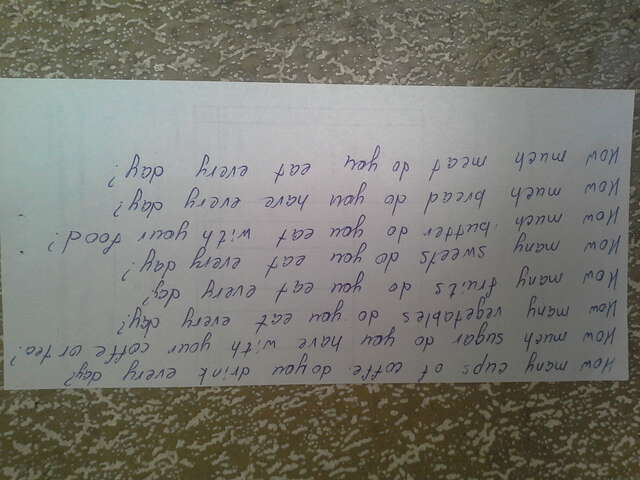 How many cups of coffe do you drink every day?
How much sugar do you have with your coffe or tea?
How many vegetables do you eat every day?
How many fruits do you eat every day?
How many sweets do you eat every day?
How much butter do you eat with your food?
How much bread do you have every day?
How much meat do you eat every day?